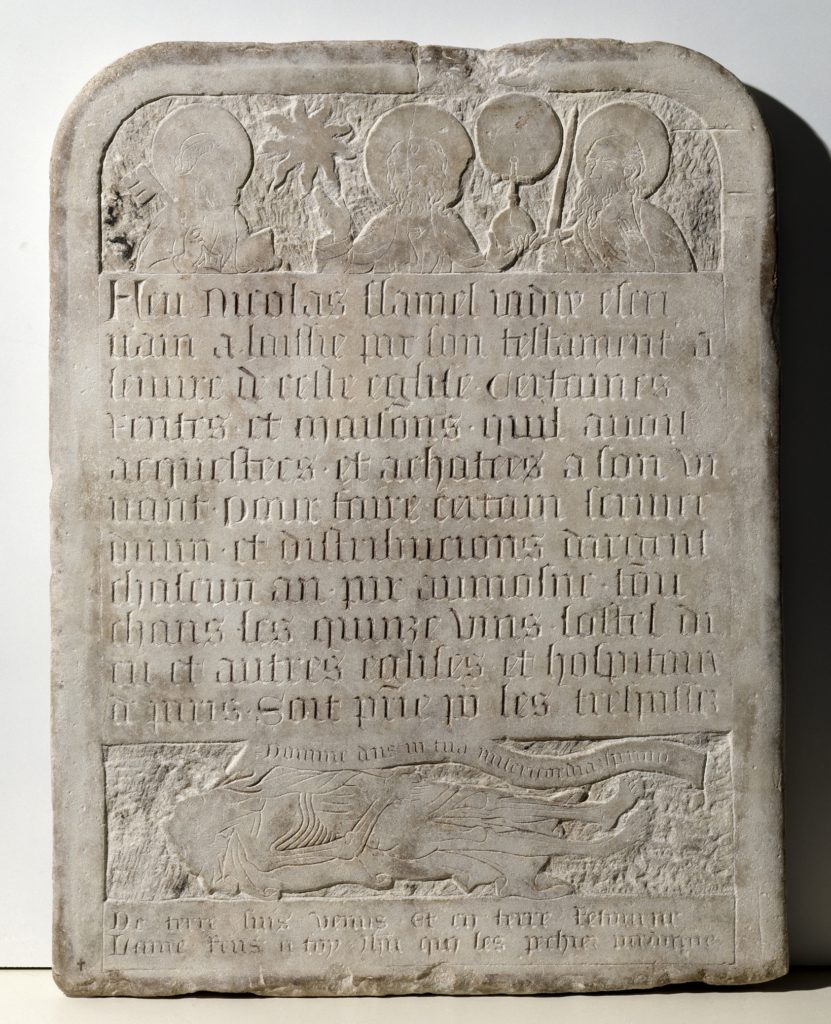 Feu Nicolas flamel iadis escri
uain a laissie par son testament a
leuure de ceste eglise certaines
rentes et maisons · quil auoit
acquestees · et achatees a son vi
uant · pour faire certain seruice
diuin · et distribucions dargent
chascun an · par aumosne · touˉ
chans les quinze vins · lostel di
eu et autres eglises et hospitaux
de paris · Soit prie po² les trespassez
Domine deˉus in tua misericordia speraui
De terre suis venus et en terre retourne
Lame rens a toy ihu qui les pechiez pardonne